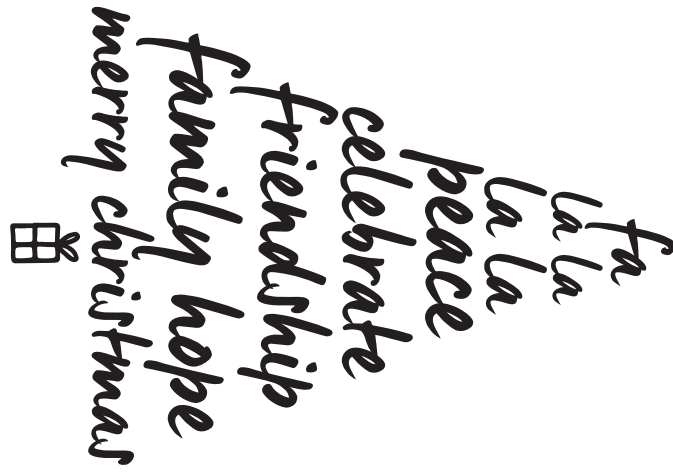 fa
la la
la la
peace
celebrate
friendship
family hope
merry christmas